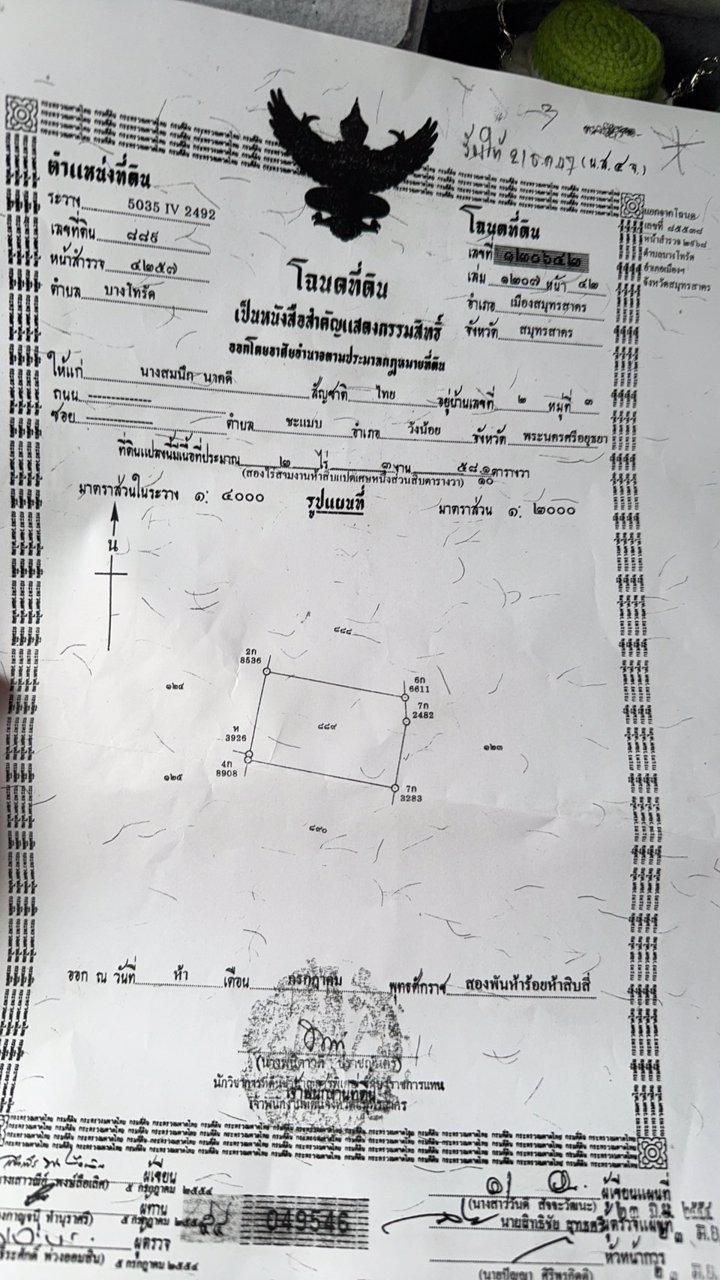 รับให้ 21 ธ.ค. 47 (น.ส.๔ จ.)
ตำแหน่งที่ดิน
ระวาง 5035 IV 2492
เลขที่ดิน ๘๘๙
หน้าสำรวจ ๔๒๕๗
ตำบล บางโทรัด
โฉนดที่ดิน
เลขที่ ๑๒๐๖๔๒
เล่ม ๑๒๐๗ หน้า ๔๒
อำเภอ เมืองสมุทรสาคร
จังหวัด สมุทรสาคร
แยกจากโฉนด
เลขที่ ๘๕๕๓๘
หน้าสำรวจ ๒๕๖๘
ตำบลบางโทรัด
อำเภอเมืองฯ
จังหวัดสมุทรสาคร
โฉนดที่ดิน
เป็นหนังสือสำคัญแสดงกรรมสิทธิ์
ออกโดยอาศัยอำนาจตามประมวลกฎหมายที่ดิน
ให้แก่ นางสมนึก นาคดี สัญชาติ ไทย อยู่บ้านเลขที่ ๒ หมู่ที่ ๓
ถนน -------------
ซอย ------------- ตำบล ชะแมบ อำเภอ วังน้อย จังหวัด พระนครศรีอยุธยา
ที่ดินแปลงนี้มีเนื้อที่ประมาณ ๒ ไร่ ๓ งาน ๕๘ ๑/๑๐ ตารางวา
(สองไร่สามงานห้าสิบแปดเศษหนึ่งส่วนสิบตารางวา)
มาตราส่วนในระวาง ๑: ๔๐๐๐ รูปแผนที่ มาตราส่วน ๑: ๒๐๐๐
น
๘๘๘
2ก
8536
6ก
6611
๑๒๔
7ก
2482
๘๘๙
ห
3926
๑๒๓
๑๒๕
4ก
8908
7ก
3283
๘๙๐
ออก ณ วันที่ ห้า เดือน กรกฎาคม พุทธศักราช สองพันห้าร้อยห้าสิบสี่
เจ้าพนักงานที่ดิน
ผู้เขียน
๕ กรกฎาคม ๒๕๕๔
ผู้ทาน
๕ กรกฎาคม ๒๕๕๔
ผู้ตรวจ
๕ กรกฎาคม ๒๕๕๔
049546
ผู้เขียนแผนที่
(นางสาววันดี สัจจะวัฒนะ)
ผู้ตรวจแผนที่
หัวหน้าการ